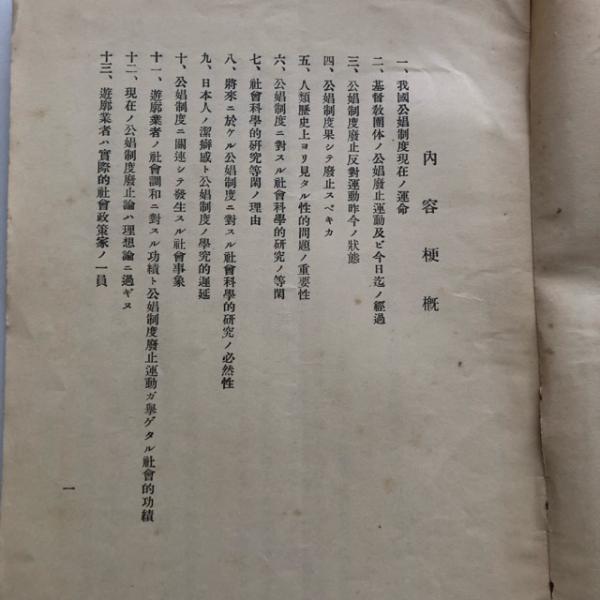 內容梗概
一、我國公娼制度現在ノ運命
二、基督敎團体ノ公娼廢止運動及ビ今日迄ノ經過
三、公娼制度廢止反對運動昨今ノ狀態
四、公娼制度果シテ廢止スベキカ
五、人類歷史上ヨリ見タル性的問題ノ重要性
六、公娼制度ニ對スル社會科學的硏究ノ等閑
七、社會科學的硏究等閑ノ理由
八、將來ニ於ケル公娼制度ニ對スル社會科學的硏究ノ必然性
九、日本人ノ潔癖感ト公娼制度ノ學究的遲延
十、公娼制度ニ關連シテ發生スル社會事象
十一、遊廓業者ノ社會調和ニ對スル功績ト公娼制度廢止運動ガ擧ゲタル社會的功績
十二、現在ノ公娼制度廢止論ハ理想論ニ過ギヌ
十三、遊廓業者ハ實際的社會政策家ノ一員
一